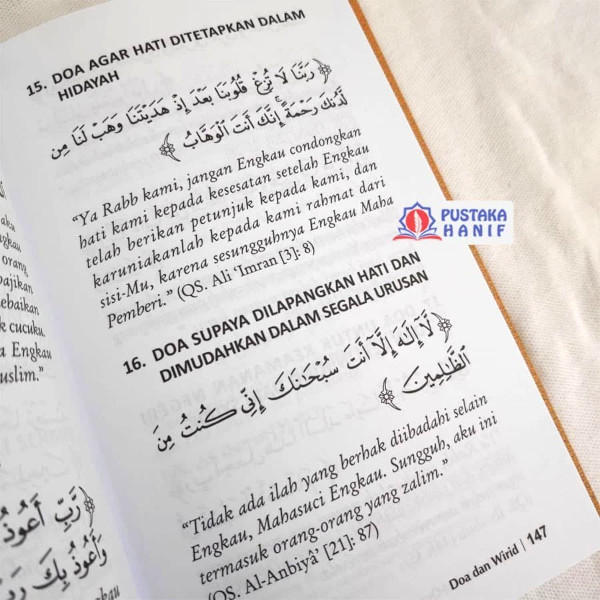 aku
ngkau
orang
da
bajikan
ebaikan
k cucuku.
a Engkau
uslim."
رَبِّ أَعُوذُ
وَأَعُوذُ بِكَ رَبِّ
Engkau
15. DOA AGAR HATI DITETAPKAN DALAM
HIDAYAH
﴿ رَبَّنَا لَا تُزِغْ قُلُوبَنَا بَعْدَ إِذْ هَدَيْتَنَا وَهَبْ لَنَا مِن
لَّدُنكَ رَحْمَةً ۚ إِنَّكَ أَنتَ الْوَهَّابُ ﴾
"Ya Rabb kami, jangan Engkau condongkan
hati kami kepada kesesatan setelah Engkau
telah berikan petunjuk kepada kami, dan
karuniakanlah kepada kami rahmat dari
sisi-Mu, karena sesungguhnya Engkau Maha
Pemberi." (QS. Ali 'Imran [3]: 8)
16. DOA SUPAYA DILAPANGKAN HATI DAN
DIMUDAHKAN DALAM SEGALA URUSAN
﴿ لَّا إِلَٰهَ إِلَّا أَنتَ سُبْحَانَكَ إِنِّي كُنتُ مِنَ
الظَّالِمِينَ ﴾
"Tidak ada ilah yang berhak diibadahi selain
Engkau, Mahasuci Engkau. Sungguh, aku ini
termasuk orang-orang yang zalim."
(QS. Al-Anbiyâ' [21]: 87)
Doa dan Wirid | 147
PUSTAKA
HANIF